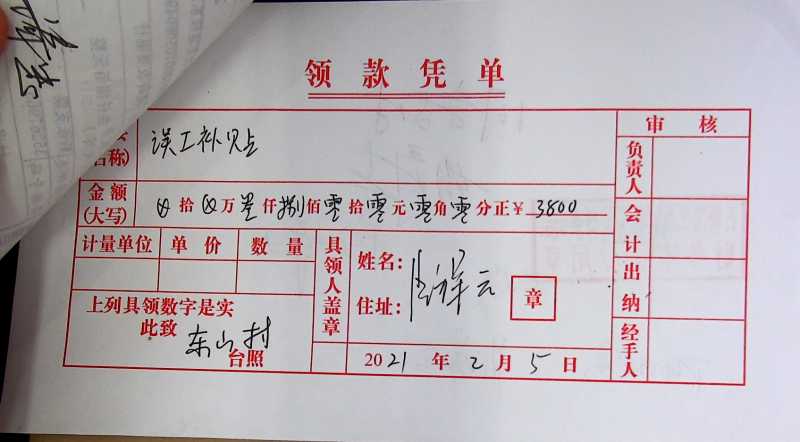 领款凭单
审核
名称)
误工补贴
负责人
金额
(大写)
⊗拾⊗万叁仟捌佰零拾零元零角零分正¥3800
会计
计量单位 单价 数量
具领人盖章
姓名:
祥云
住址:
章
出纳
上列具领数字是实
此致
东山村
台照
2021年2月5日
经手人